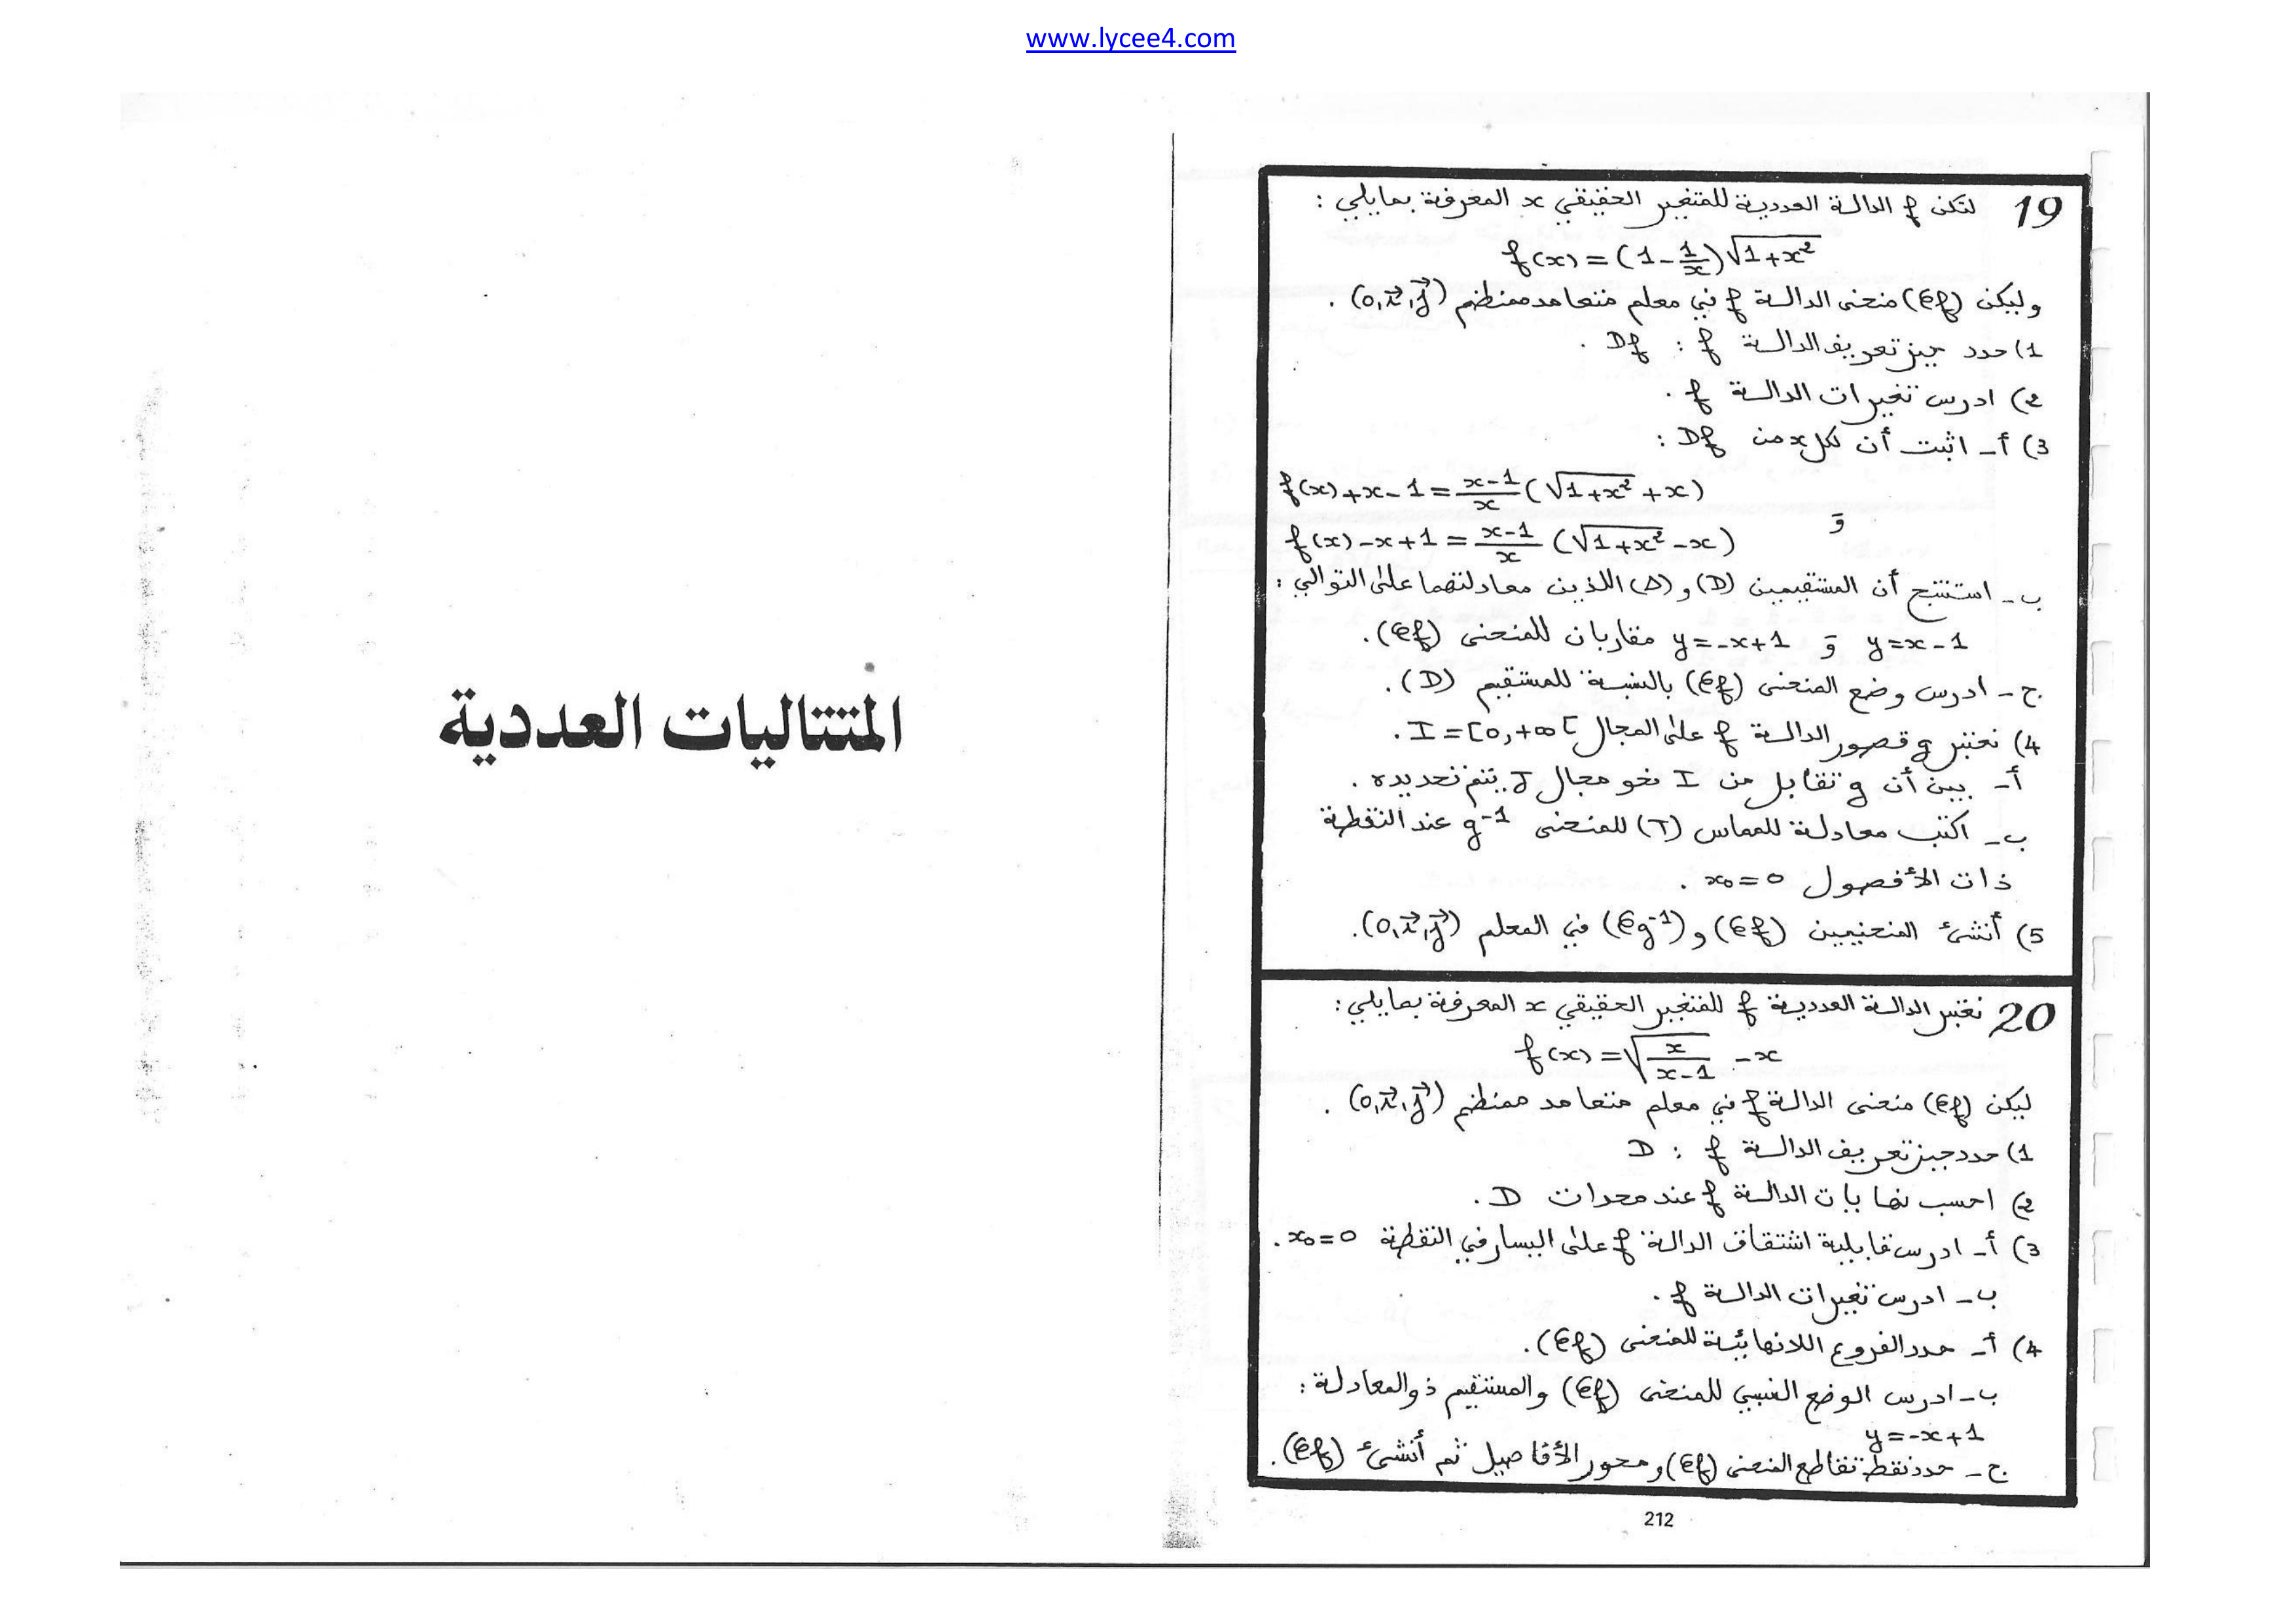 www.lycee4.com
19 لتكن f الدالة العددية للمتغير الحقيقي x المعرفة بمايلي :
f(x) = (1 - 1/x)√(1+x²)
وليكن (Cf) منحنى الدالة f في معلم متعامد ممنظم (O,i,j) .
1) حدد حيز تعريف الدالة f : Df .
2) ادرس تغيرات الدالة f .
3) أ- اثبت أن لكل x من Df :
f(x)+x-1 = (x-1)/x (√(1+x²) + x)
و
f(x)-x+1 = (x-1)/x (√(1+x²) - x)
ب- استنتج أن المستقيمين (D) و (Δ) اللذين معادلتهما على التوالي :
y=x-1 و y=-x+1 مقاربان للمنحنى (Cf).
ج- ادرس وضع المنحنى (Cf) بالنسبة للمستقيم (D).
4) نعتبر g قصور الدالة f على المجال I=[0,+∞[ .
أ- بين أن g تقابل من I نحو مجال J يتم تحديده .
ب- اكتب معادلة للمماس (T) للمنحنى g⁻¹ عند النقطة
ذات الأفصول x₀=0 .
5) أنشئ المنحنيين (Cf) و (Cg⁻¹) في المعلم (O,i,j).
20 نعتبر الدالة العددية f للمتغير الحقيقي x المعرفة بمايلي :
f(x) = √(x/(x-1)) - x
ليكن (Cf) منحنى الدالة f في معلم متعامد ممنظم (O,i,j) .
1) حدد حيز تعريف الدالة f : D
2) احسب نهايات الدالة f عند محدات D .
3) أ- ادرس قابلية اشتقاق الدالة f على اليسار في النقطة x₀=0 .
ب- ادرس تغيرات الدالة f .
4) أ- حدد الفروع اللانهائية للمنحنى (Cf).
ب- ادرس الوضع النسبي للمنحنى (Cf) والمستقيم ذو المعادلة :
y=-x+1
ج- حدد نقط تقاطع المنحنى (Cf) ومحور الأفاصيل ثم أنشئ (Cf).
212
المتتاليات العددية